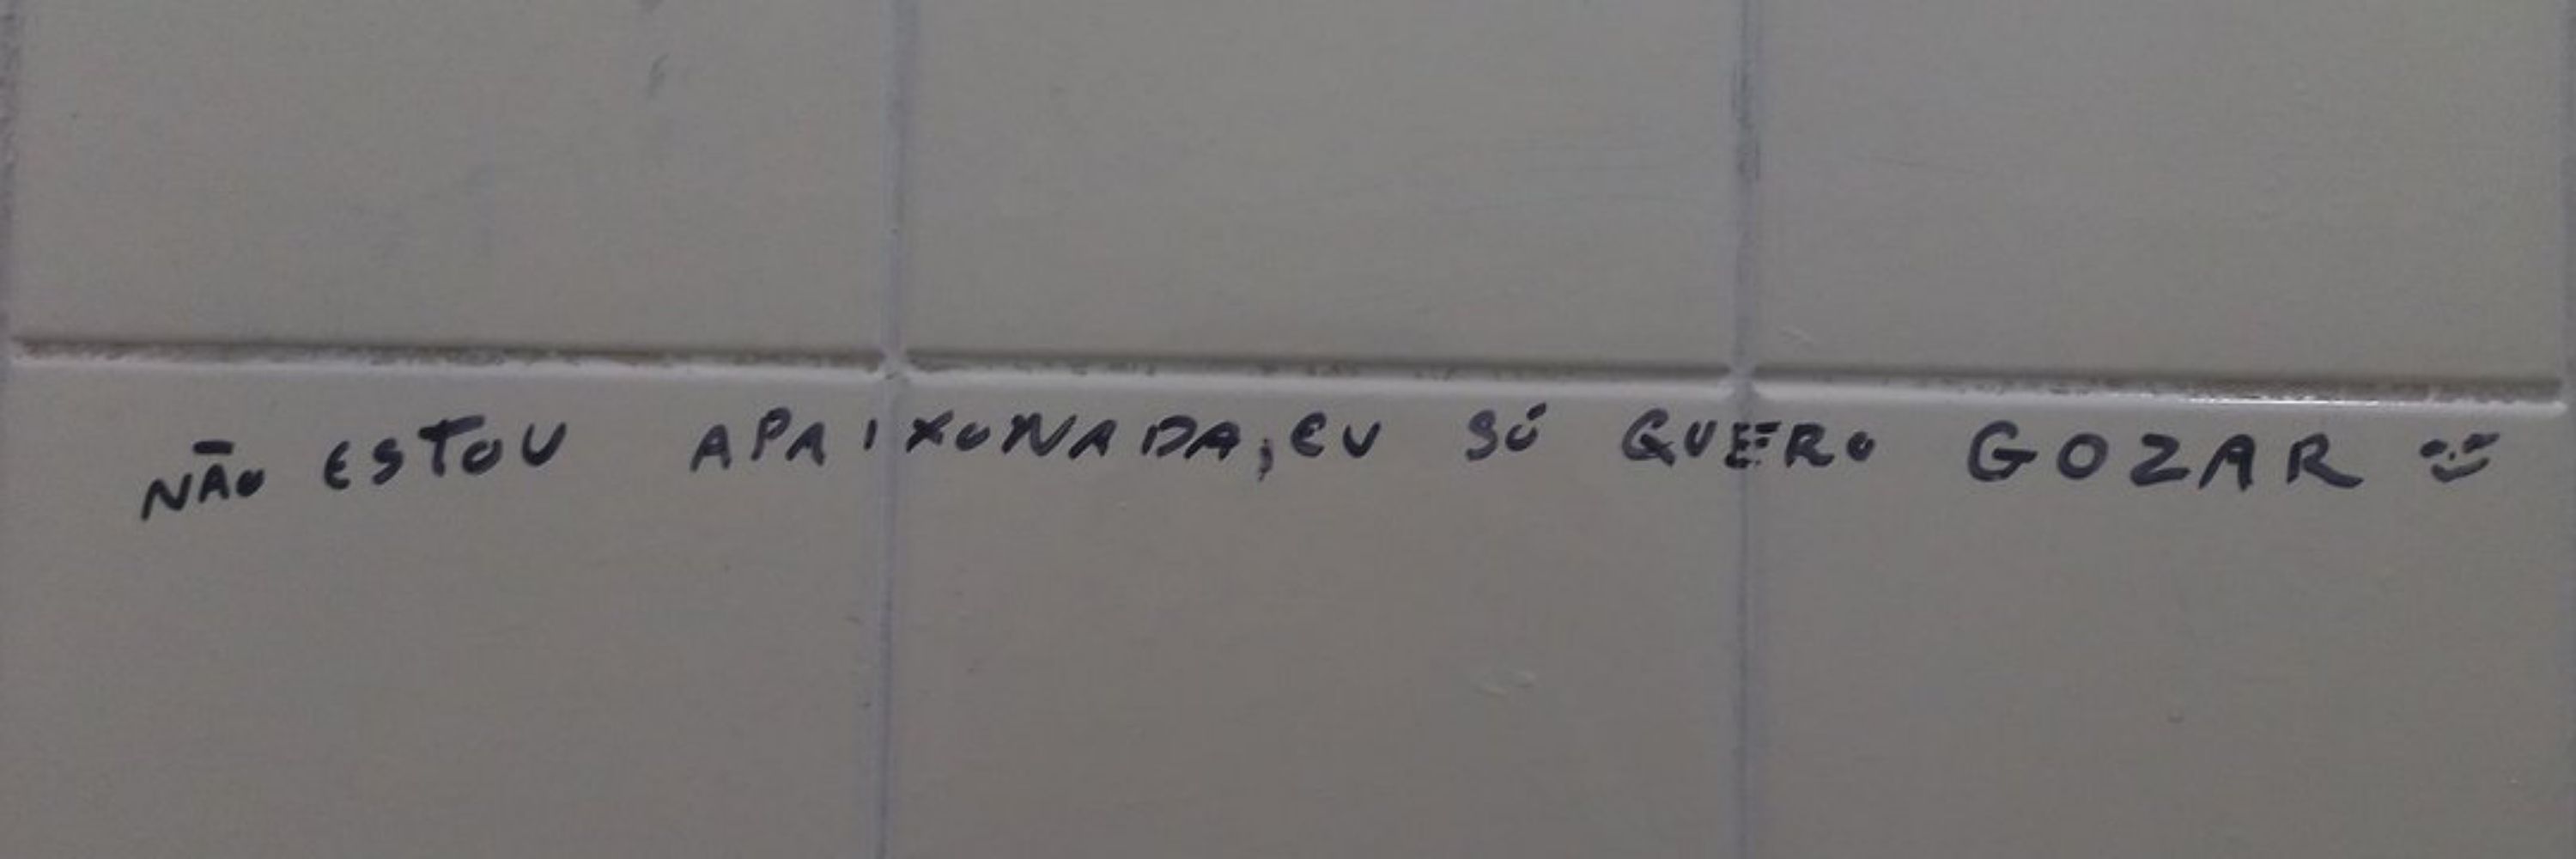 NÃO ESTOU APAIXONADA, EU SÓ QUERO GOZAR